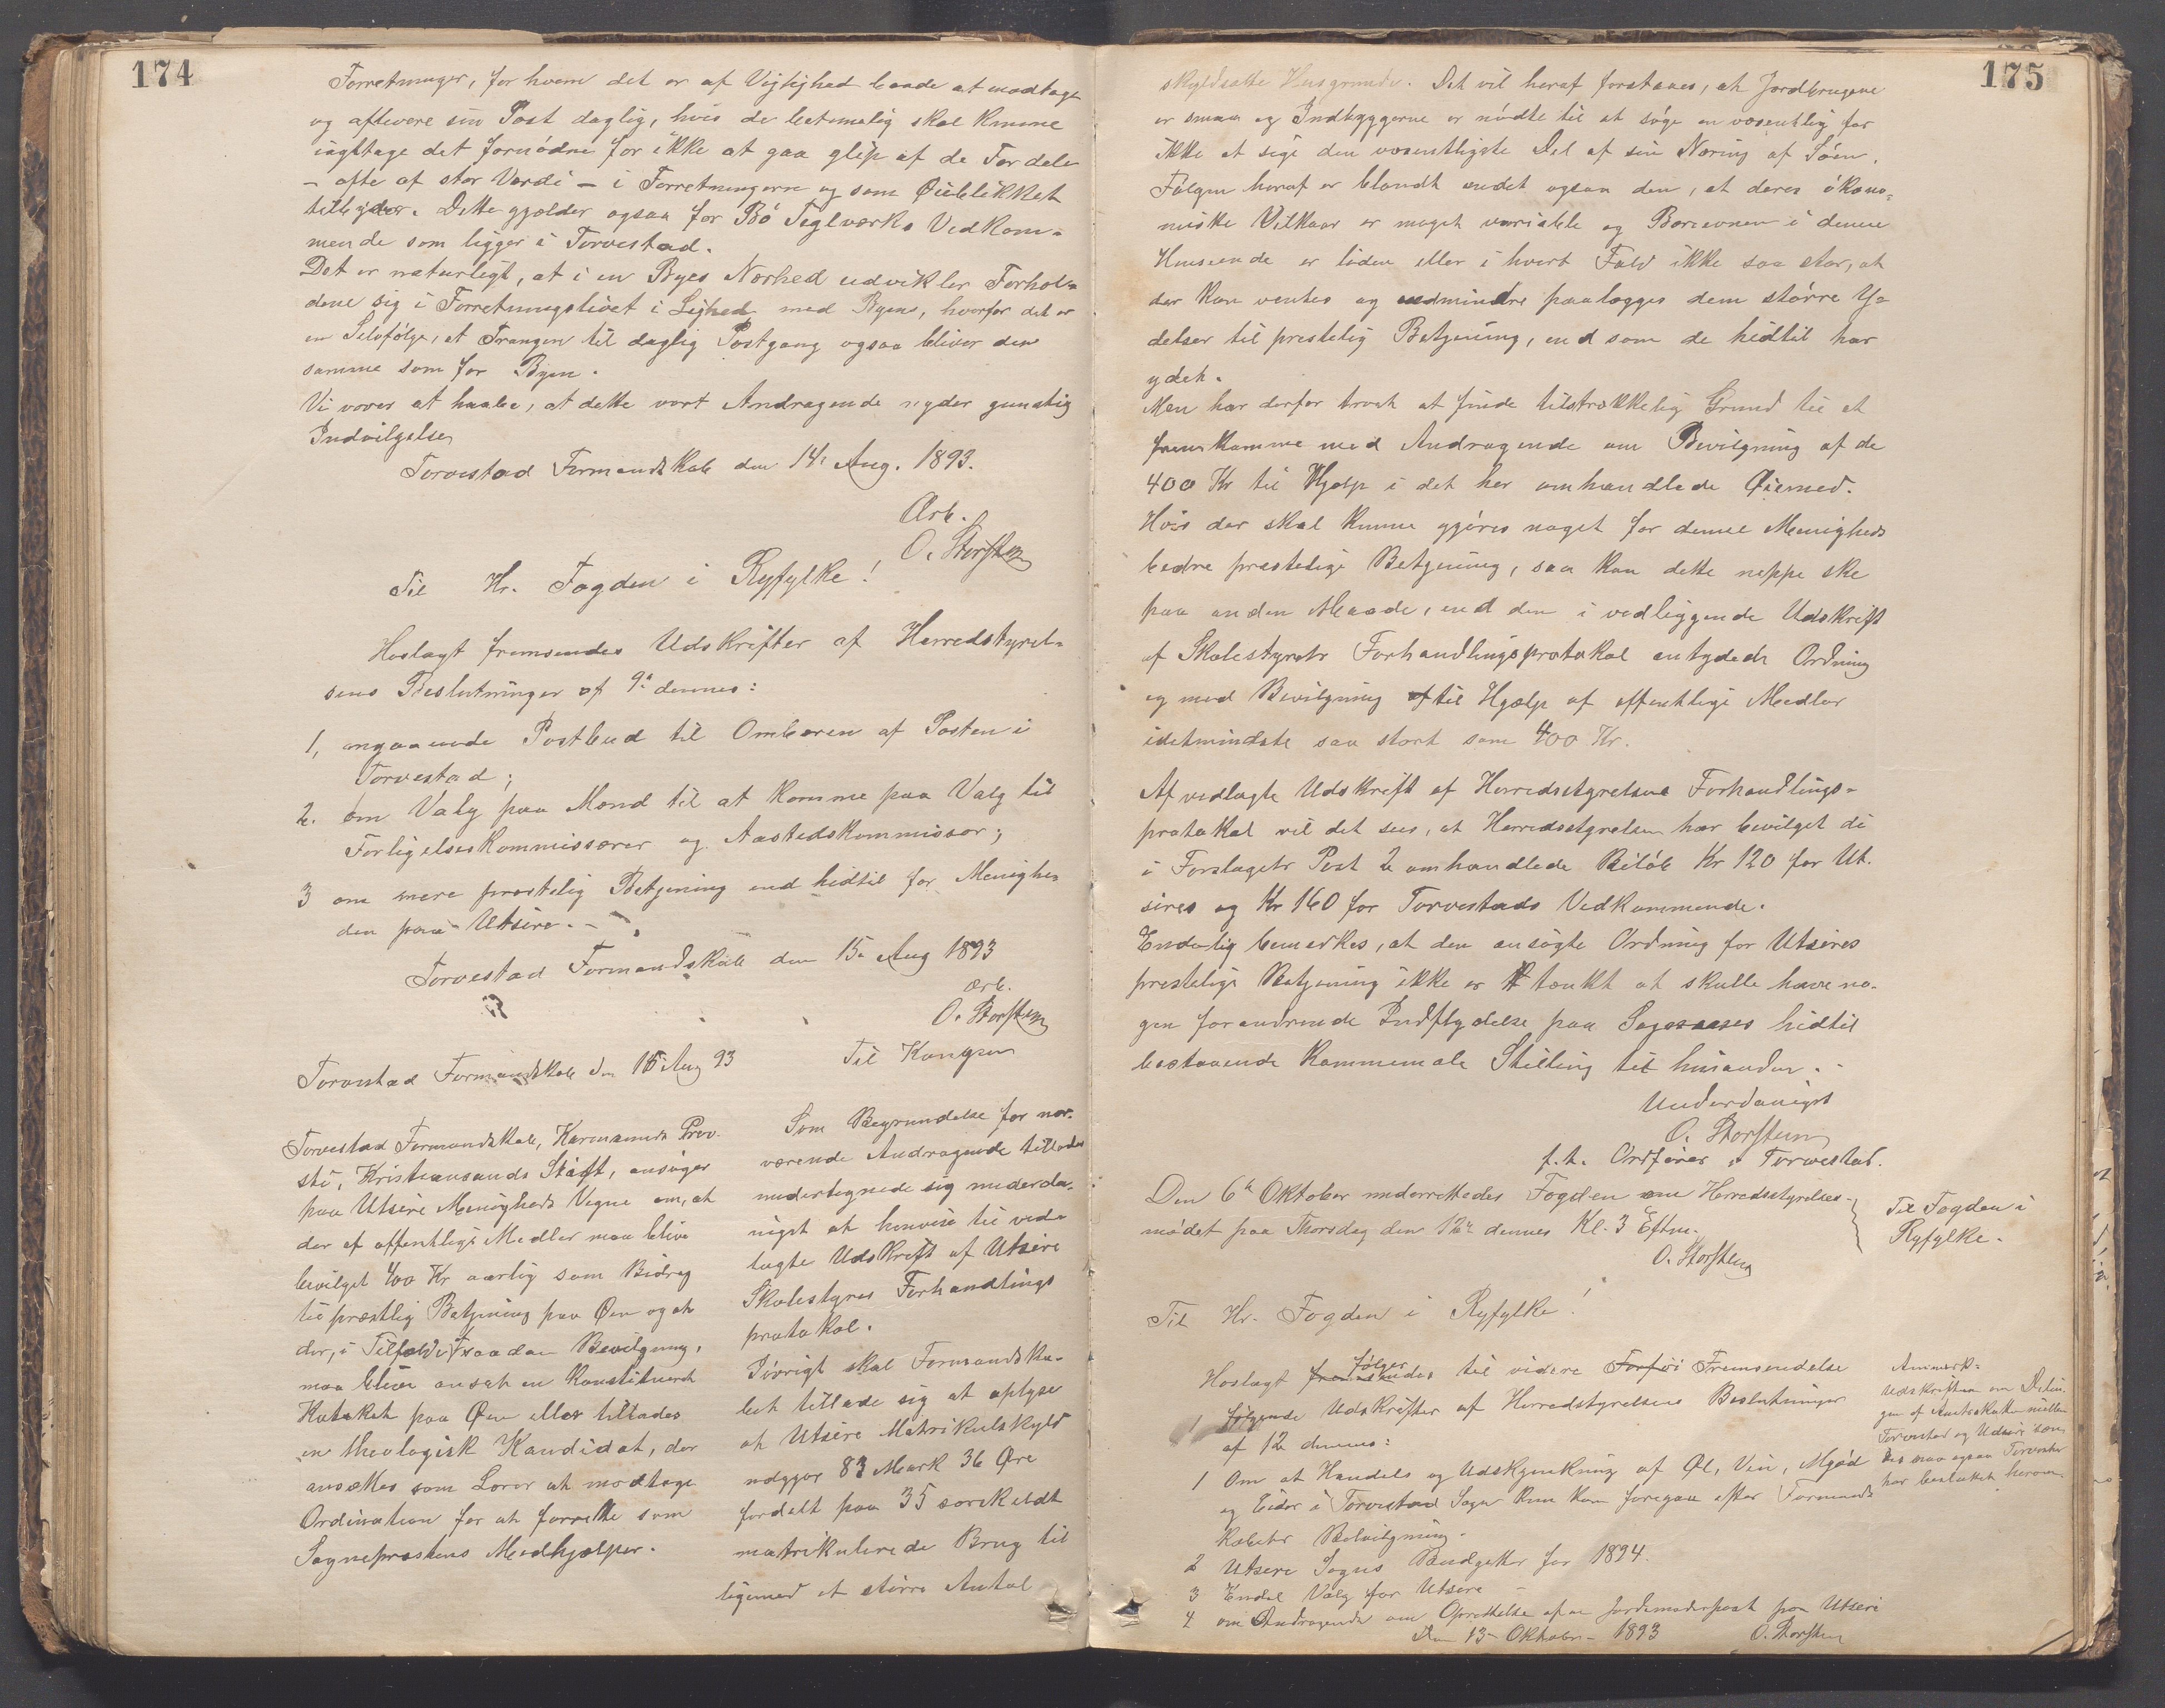 174
Forretninger, for hvem det er af Vigtighed baade at modtage
og aflevere sin Post daglig, hvis de betimelig skal kunne
iagttage det fornødne for ikke at gaa glip af de Fordele
– ofte af stor Værdi – i Forretningerne og som Øieblikket
tilbyder. Dette gjælder ogsaa for Bø Teglværks Vedkom=
mende som ligger i Torvestad.
Det er naturligt, at i en Byes Nærhed udvikler Forhol=
dene sig i Forretningslivet i Lighed med Byens, hvorfor det er
en Selvfølge, at Trangen til daglig Postgang ogsaa bliver den
samme som for Byen.
Vi vover at haabe, at dette vort Andragende nyder gunstig
Indvilgelse
Torvestad Formandskab den 14de Aug. 1893.
Ærb.
O. Storsten
Til Hr. Fogden i Ryfylke!
Hoslagt fremsendes Udskrifter af Herredstyrel=
sens Beslutninger af 9de dennes:
1, angaaende Postbud til Ombæren af Posten i
Torvestad;
2. om Valg paa Mænd til at komme paa Valg til
Forligelseskommissærer og Aastedskommissær;
3 om mere prestelig Betjening end hidtil for Menighe=
den paa Utsire. –
Torvestad Formandskab den 15de Aug 1893
ærb.
O. Storsten
Torvestad Formandskab den 15de Aug 93
Til Kongen
Torvestad Formandskab, Karmsunds Prov=
sti, Kristiansands Stift, ansøger
paa Utsire Menigheds Vegne om, at
der af offentlige Midler maa blive
bevilget 400 Kr aarlig som Bidrag
til præstlig Betjening paa Øen og at
der, i Tilfælde saadan Bevilgning,
maa blive ansat en Konstitueret
Kateket paa Øen eller tillades
en theologisk Kandidat, der
ansættes som Lærer at modtage
Ordination for at forrette som
Sognepræstens Medhjælper.
Som Begrundelse for nær=
værende Andragende tillader
undertegnede sig underda=
nigst at henvise til ved=
lagte Udskrift af Utsire
Skolestyres Forhandlings
protokol.
Iøvrigt skal Formandska=
bet tillade sig at oplyse
at Utsire Matrikulskyld
udgjør 83 Mark 36 Øre
fordelt paa 35 særskildt
matrikulerede Brug til
ligemed et større Antal
175
skyldsatte Husgrunde. Det vil heraf forstaaes, at Jordbrugene
er smaa og Indbyggerne er nødte til at søge en væsentlig for
ikke at sige den væsentligste Del af sin Næring af Søen.
Følgen heraf er blandt andet ogsaa den, at deres økono=
miske Vilkaar er meget variable og Bæreevnen i denne
Henseende er liden eller i hvert Fald ikke saa stor, at
der kan ventes og endmindre paalægges dem større Y=
delser til prestelig Betjening, end som de hidtil har
ydet.
Men har derfor troet at finde tilstrækkelig Grund til at
fremkomme med Andragende om Bevilgning af de
400 Kr til Hjælp i det her omhandlede Øiemed.
Hvis der skal kunne gjøres noget for denne Menigheds
bedre prestelige Betjening, saa kan dette neppe ske
paa anden Maade, end den i vedliggende Udskrift
af Skolestyrets Forhandlingsprotokol antydede Ordning
og med Bevilgning af til Hjælp af offentlige Midler
idetmindste saa stort som 400 Kr.
Af vedlagte Udskrift af Herredsstyrelsens Forhandlings=
protokol vil det sees, at Herredsstyrelsen har bevilget de
i Forslagets Post 2 omhandlede Beløb Kr 120 for Ut=
sires og Kr 160 for Torvestads Vedkommende.
Endelig bemærkes, at den ansøgte Ordning for Utsires
prestelige Betjening ikke er tænkt at skulle have no=
gen forandrende Indflydelse paa Sognenes hidtil
bestaaende Kommunale Stilling til hinanden. –
Underdanigst
O. Storsten
f. t. Ordfører i Torvestad.
Den 6te Oktober underrettedes Fogden om Herredsstyrelses=
mødet paa Thorsdag den 12te dennes Kl. 3 Eftm.
O. Storsten
Til Fogden i
Ryfylke.
Til Hr. Fogden i Ryfylke!
Hoslagt fremsendes følger til videre Forføi Fremsendelse
følgende Udskrifter af Herredstyrelsens Beslutninger
af 12 dennes:
1 Om at Handels og Udskjænkning af Øl, Vin, Mjød
og Cider i Torvestad Sogn kun kan foregaa efter Formand=
skabets Bevilgning.
2 Utsire Sogns Budgetter for 1894.
3 Endel Valg for Utsire
4 om Andragende om Oprettelse af en Jordemoderpost paa Utsire
Den 13de Oktober 1893 O. Storsten
Anmærk=
Udskriften om Delin=
gen af Amtsskatten mellem
Torvestad og Utsire sen=
des naar ogsaa Torvestad
har besluttet herom.